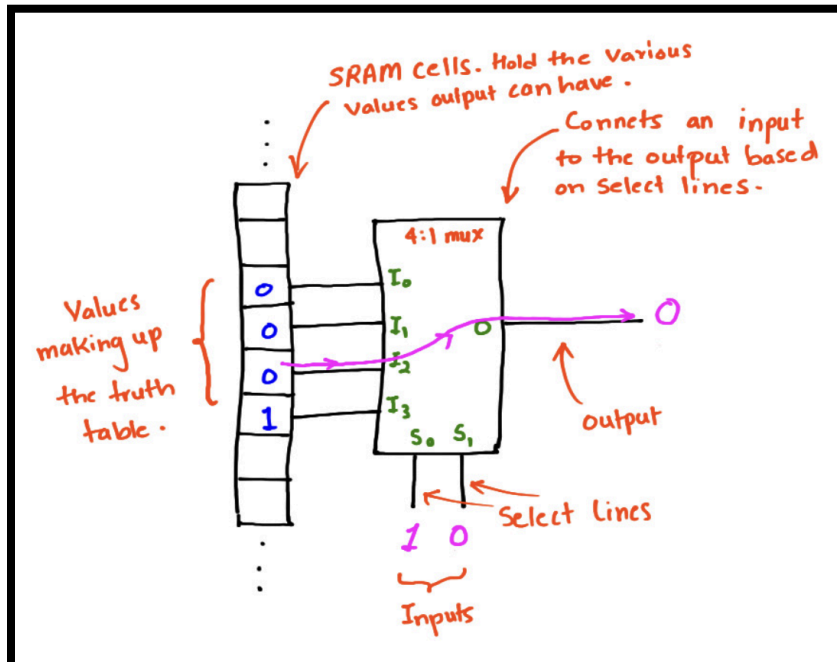 SRAM cells. Hold the various
values output can have.
Connets an input
to the output based
on select lines.
4:1 mux
Values
making up
the truth
table.
0
0
0
1
I0
I1
I2
I3
O
0
output
S0 S1
Select lines
1 0
Inputs